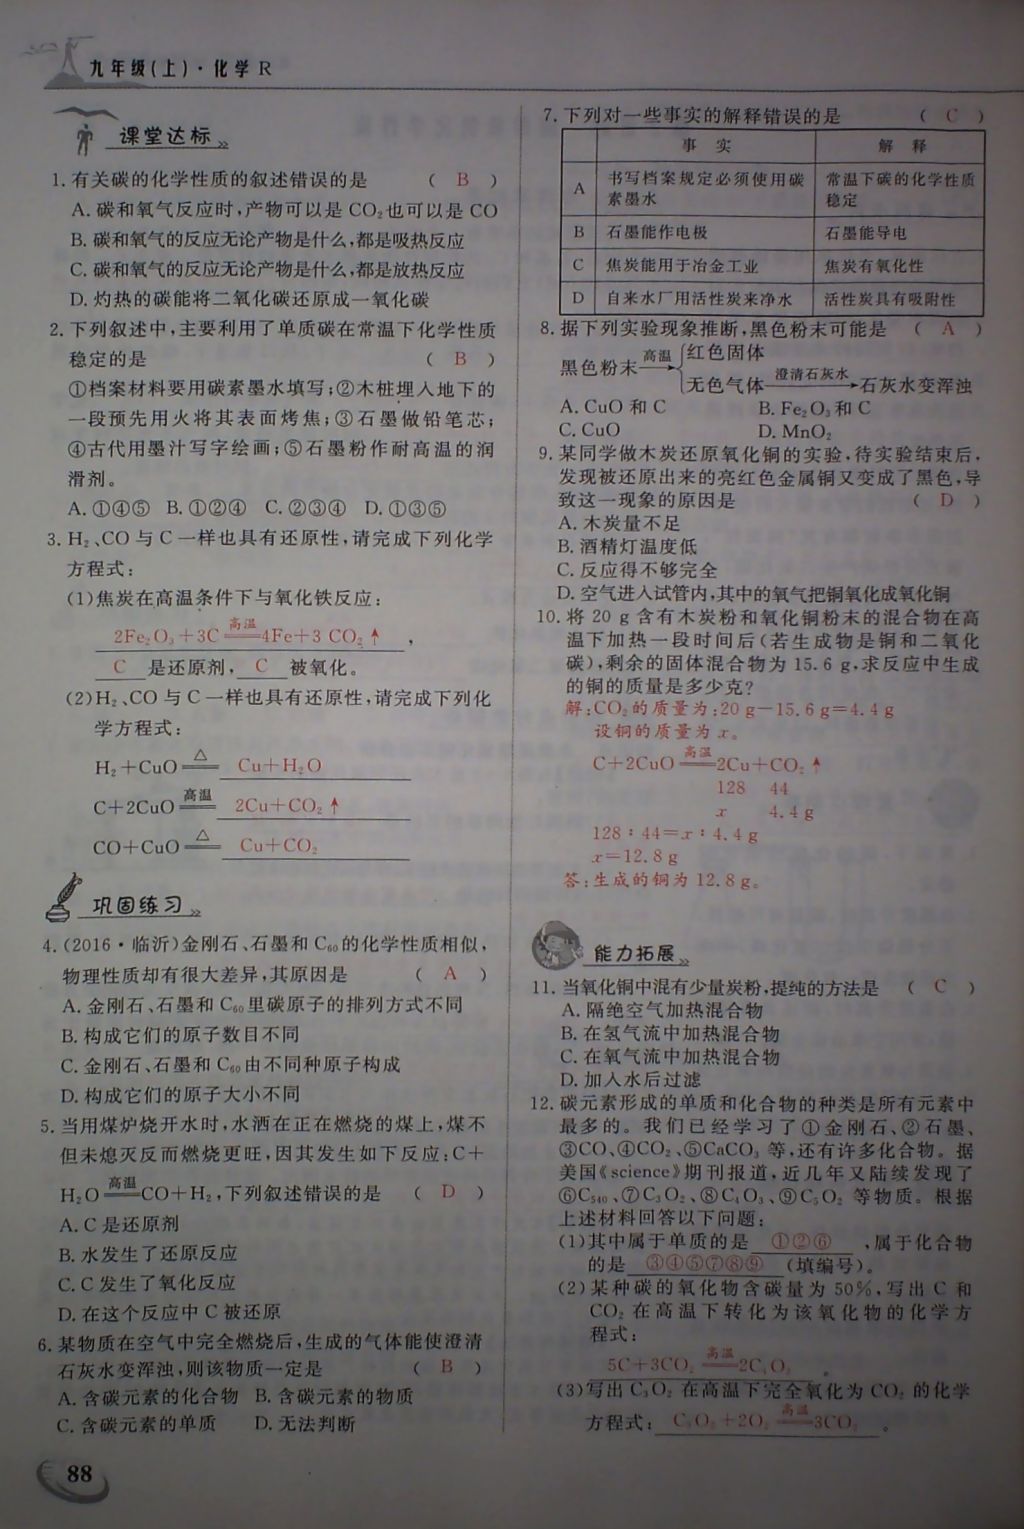 九年级(上)·化学 R
课堂达标
1. 有关碳的化学性质的叙述错误的是 ( B )
A. 碳和氧气反应时,产物可以是 CO₂也可以是 CO
B. 碳和氧气的反应无论产物是什么,都是吸热反应
C. 碳和氧气的反应无论产物是什么,都是放热反应
D. 灼热的碳能将二氧化碳还原成一氧化碳
2. 下列叙述中,主要利用了单质碳在常温下化学性质
稳定的是 ( B )
①档案材料要用碳素墨水填写;②木桩埋入地下的
一段预先用火将其表面烤焦;③石墨做铅笔芯;
④古代用墨汁写字绘画;⑤石墨粉作耐高温的润
滑剂。
A. ①④⑤ B. ①②④ C. ②③④ D. ①③⑤
3. H₂、CO 与 C 一样也具有还原性,请完成下列化学
方程式:
(1)焦炭在高温条件下与氧化铁反应:
2Fe₂O₃+3C 高温 4Fe+3 CO₂↑ ,
C 是还原剂, C 被氧化。
(2)H₂、CO 与 C 一样也具有还原性,请完成下列化
学方程式:
H₂+CuO △ Cu+H₂O
C+2CuO 高温 2Cu+CO₂↑
CO+CuO △ Cu+CO₂
巩固练习
4. (2016·临沂)金刚石、石墨和 C₆₀的化学性质相似,
物理性质却有很大差异,其原因是 ( A )
A. 金刚石、石墨和 C₆₀里碳原子的排列方式不同
B. 构成它们的原子数目不同
C. 金刚石、石墨和 C₆₀由不同种原子构成
D. 构成它们的原子大小不同
5. 当用煤炉烧开水时,水洒在正在燃烧的煤上,煤不
但未熄灭反而燃烧更旺,因其发生如下反应:C+
H₂O 高温 CO+H₂,下列叙述错误的是 ( D )
A. C 是还原剂
B. 水发生了还原反应
C. C 发生了氧化反应
D. 在这个反应中 C 被还原
6. 某物质在空气中完全燃烧后,生成的气体能使澄清
石灰水变浑浊,则该物质一定是 ( B )
A. 含碳元素的化合物 B. 含碳元素的物质
C. 含碳元素的单质 D. 无法判断
88
7. 下列对一些事实的解释错误的是 ( C )
事 实 解 释
A 书写档案规定必须使用碳素墨水 常温下碳的化学性质稳定
B 石墨能作电极 石墨能导电
C 焦炭能用于冶金工业 焦炭有氧化性
D 自来水厂用活性炭来净水 活性炭具有吸附性
8. 据下列实验现象推断,黑色粉末可能是 ( A )
黑色粉末 高温 红色固体
无色气体 澄清石灰水 石灰水变浑浊
A. CuO 和 C B. Fe₂O₃和 C
C. CuO D. MnO₂
9. 某同学做木炭还原氧化铜的实验,待实验结束后,
发现被还原出来的亮红色金属铜又变成了黑色,导
致这一现象的原因是 ( D )
A. 木炭量不足
B. 酒精灯温度低
C. 反应得不够完全
D. 空气进入试管内,其中的氧气把铜氧化成氧化铜
10. 将 20 g 含有木炭粉和氧化铜粉末的混合物在高
温下加热一段时间后(若生成物是铜和二氧化
碳),剩余的固体混合物为 15.6 g,求反应中生成
的铜的质量是多少克?
解:CO₂的质量为:20 g－15.6 g=4.4 g
设铜的质量为 x。
C+2CuO 高温 2Cu+CO₂↑
128 44
x 4.4 g
128∶44=x∶4.4 g
x=12.8 g
答:生成的铜为 12.8 g。
能力拓展
11. 当氧化铜中混有少量炭粉,提纯的方法是 ( C )
A. 隔绝空气加热混合物
B. 在氢气流中加热混合物
C. 在氧气流中加热混合物
D. 加入水后过滤
12. 碳元素形成的单质和化合物的种类是所有元素中
最多的。我们已经学习了①金刚石、②石墨、
③CO、④CO₂、⑤CaCO₃ 等,还有许多化合物。据
美国《science》期刊报道,近几年又陆续发现了
⑥C₅₄₀、⑦C₃O₂、⑧C₄O₃、⑨C₅O₂ 等物质。根据
上述材料回答以下问题:
(1)其中属于单质的是 ①②⑥ ,属于化合物
的是 ③④⑤⑦⑧⑨ (填编号)。
(2)某种碳的氧化物含碳量为 50%,写出 C 和
CO₂ 在高温下转化为该氧化物的化学方
程式:
5C+3CO₂ 高温 2C₄O₃ 。
(3)写出 C₃O₂ 在高温下完全氧化为 CO₂ 的化学
方程式: C₃O₂+2O₂ 高温 3CO₂ 。